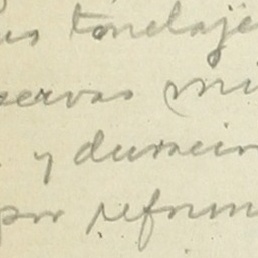 us tonelaje
servas mi
y duracin
por reform